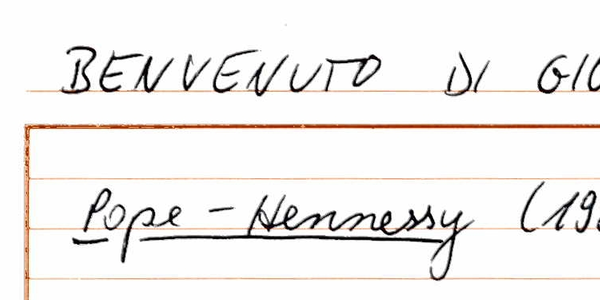 BENVENUTO DI GIO
Pope-Hennessy (19